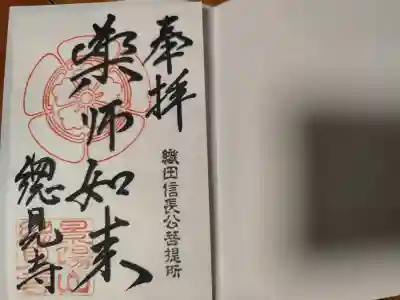 奉拝
織田信長公菩提所
薬師如来
摠見寺